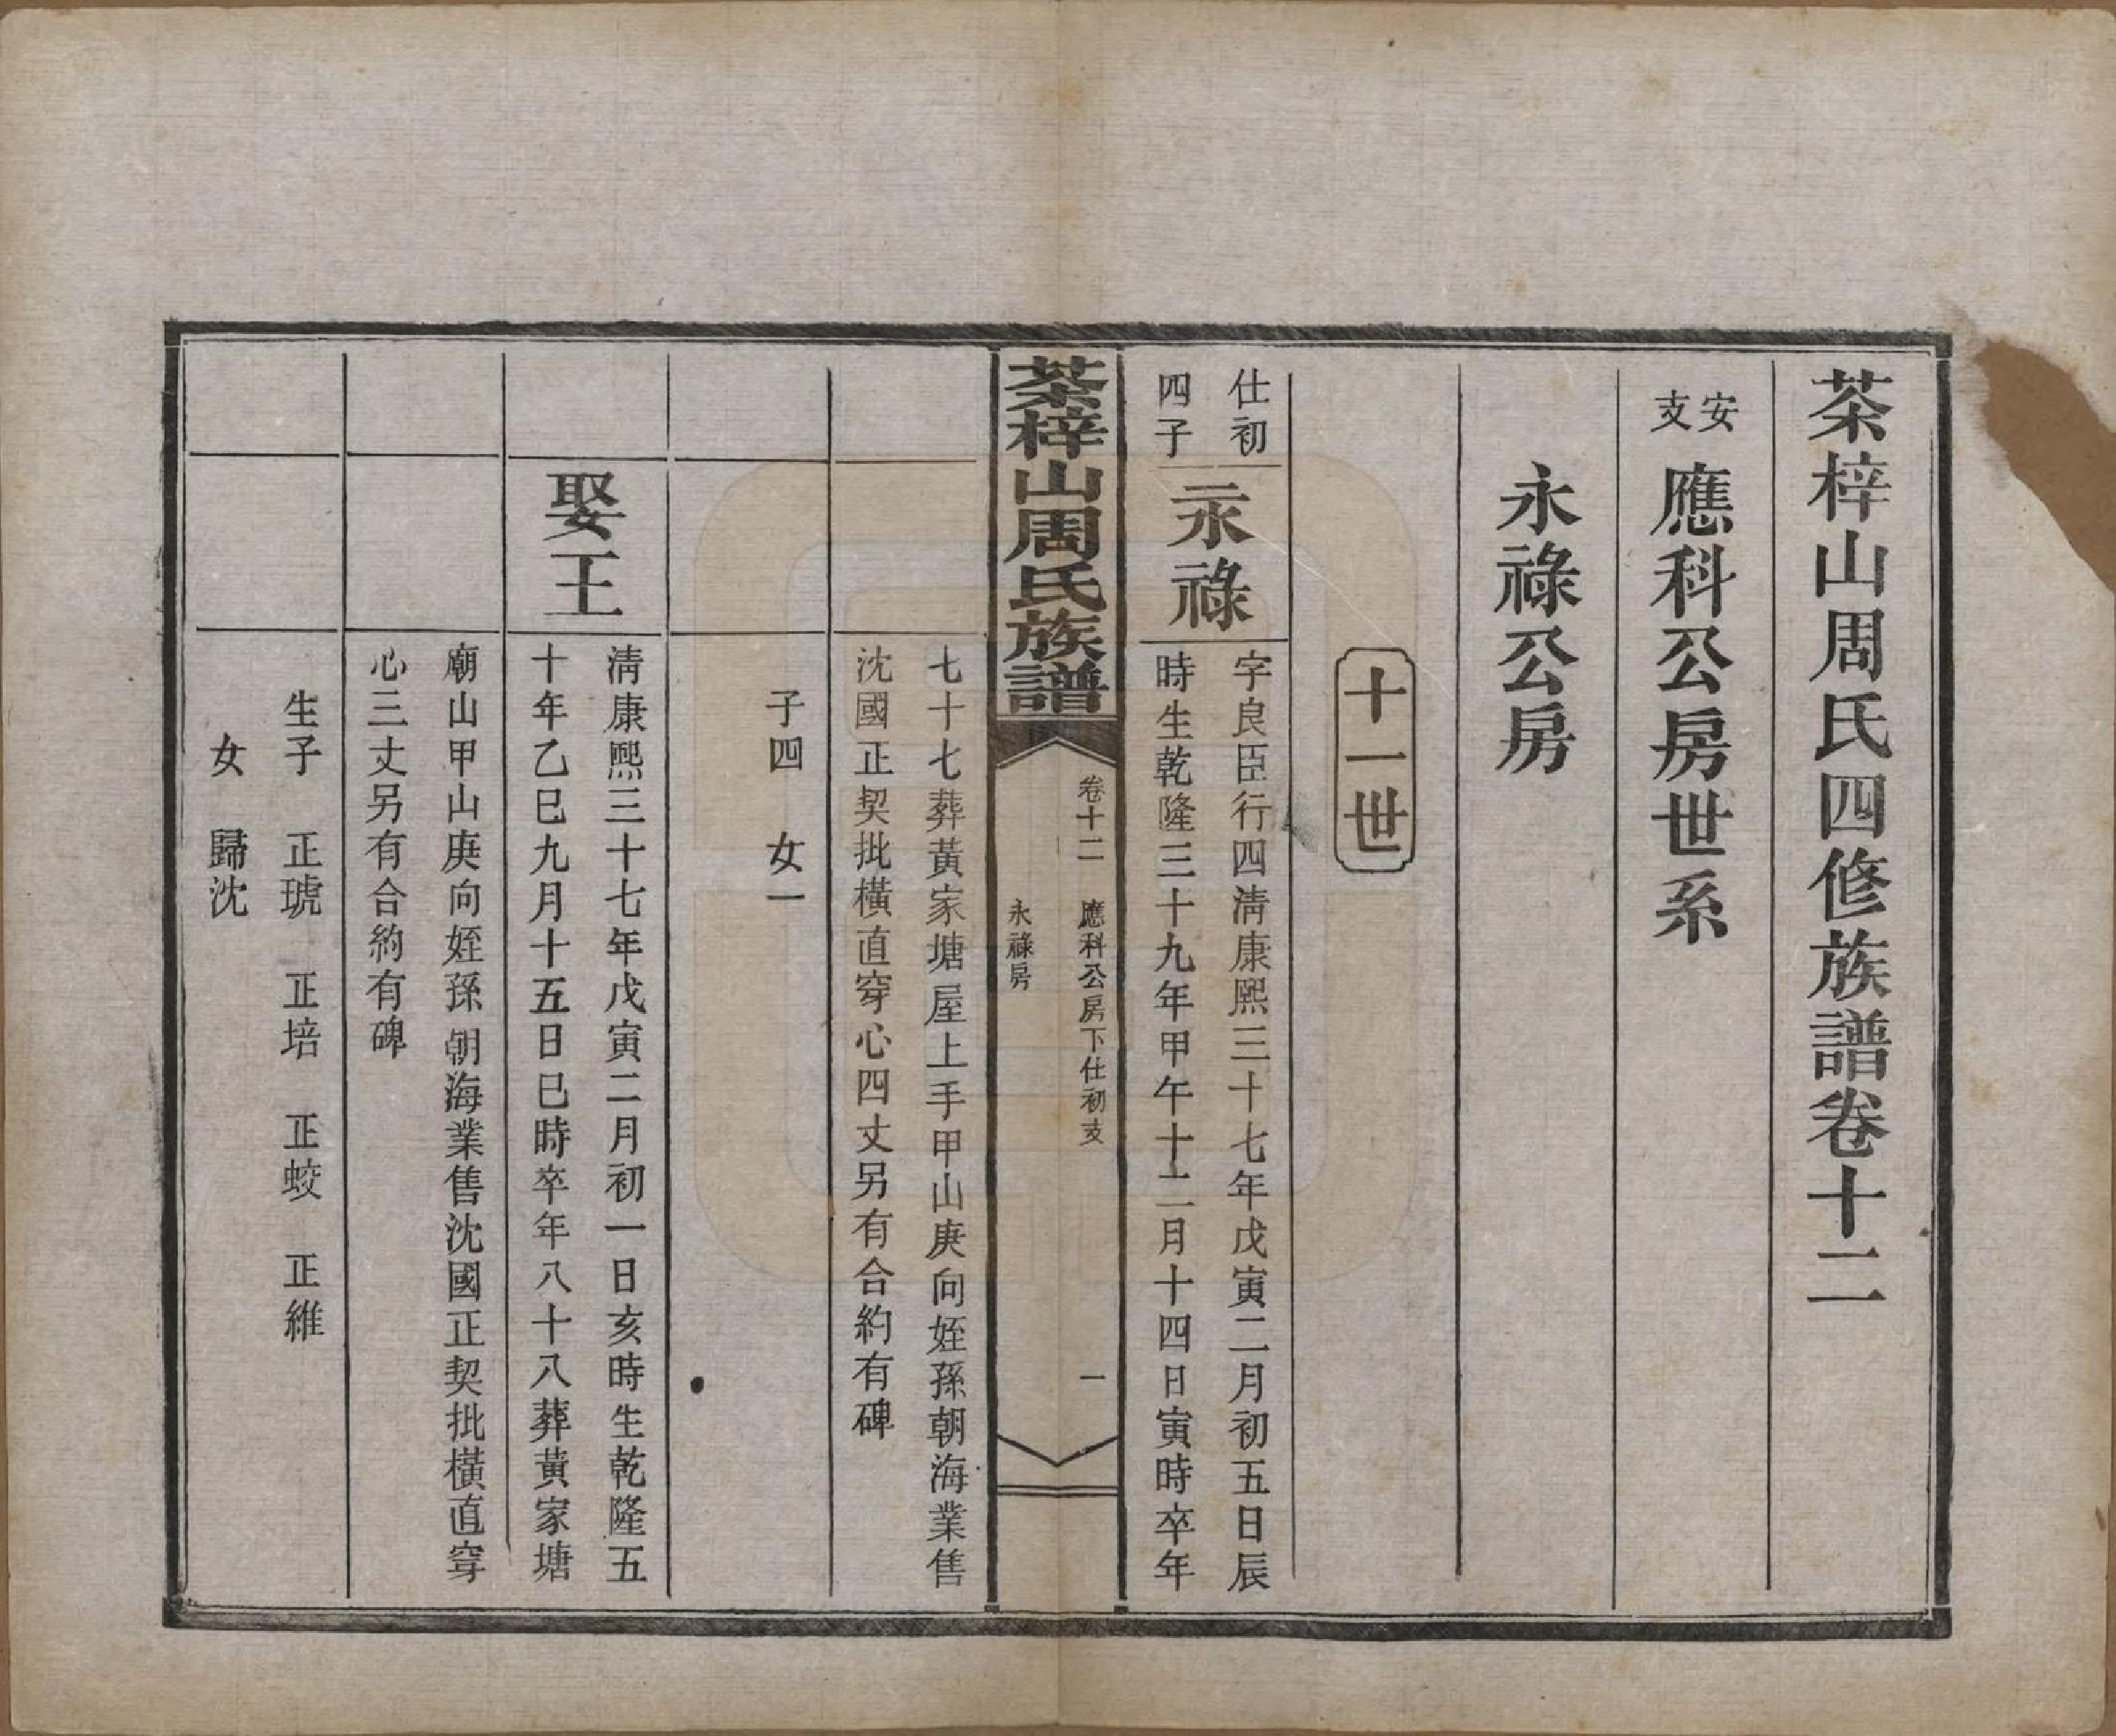 茶梓山周氏四修族譜卷十二
安支
應科公房世系
永祿公房
十一世
仕初
四子
永祿
字良臣行四淸康熙三十七年戊寅二月初五日辰
時生乾隆三十九年甲午十二月十四日寅時卒年
茶梓山周氏族譜
卷十二 應科公房下仕初支 一
永祿房
七十七葬黃家塘屋上手甲山庚向姪孫朝海業售
沈國正契批橫直穿心四丈另有合約有碑
子四 女一
娶王
淸康熙三十七年戊寅二月初一日亥時生乾隆五
十年乙巳九月十五日巳時卒年八十八葬黃家塘
廟山甲山庚向姪孫朝海業售沈國正契批橫直穿
心三丈另有合約有碑
生子 正琥 正培 正蛟 正維
女 歸沈